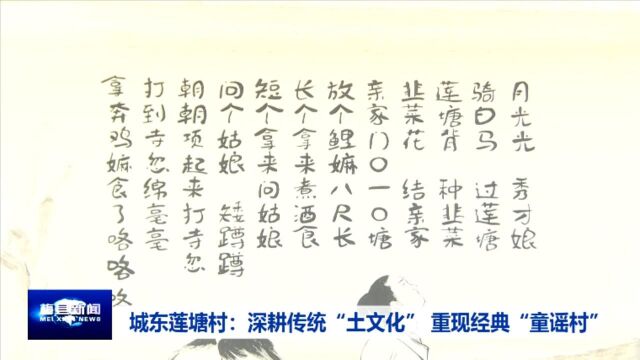 月光光 秀才娘
骑白马 过莲塘
莲塘背 种韭菜
韭菜花 结亲家
亲家门口一口塘
放个鲤嫲八尺长
长个拿来煮酒食
短个拿来问姑娘
问个姑娘 矮蹲蹲
朝朝项起来打寺忽
打到寺忽绵毫毫
拿奔鸡嫲食了咯咯
梅县新闻
MEI XIAN NEWS
城东莲塘村：深耕传统“土文化” 重现经典“童谣村”